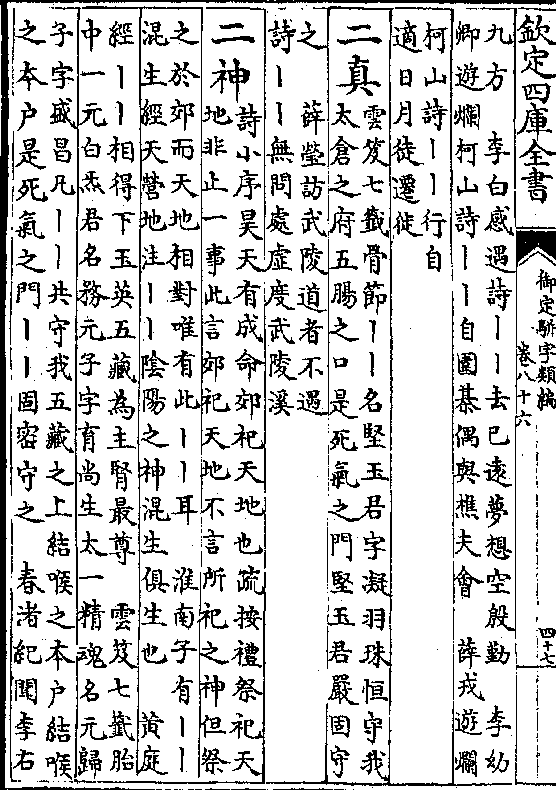 欽定四庫全書
御定駢字類編
卷八十六
四十七
九方　李白感遇詩〡〡去已遠夢想空殷勤　李幼
卿遊爛柯山詩〡〡自圍棊偶與樵夫會　薛戎遊爛
柯山詩〡〡行自
適日月徒遷徙
二真
雲笈七籤骨節〡〡名堅玉君字凝羽珠恒守我
太倉之府五腸之口是死氣之門堅玉君嚴固守
之　薛瑩訪武陵道者不遇
詩〡〡無問處虛度武陵溪
二神
詩小序昊天有成命郊祀天地也疏按禮祭祀天
地非止一事此言郊祀天地不言所祀之神但祭
之於郊而天地相對唯有此〡〡耳　淮南子有〡〡
混生經天營地注〡〡陰陽之神混生俱生也　黄庭
經〡〡相得下玉英五藏為主腎最尊　雲笈七籤胎
中一元白炁君名務元子字育尚生太一精魂名元歸
子字盛昌凡〡〡共守我五藏之上結喉之本户結喉
之本户是死氣之門〡〡固密守之　春渚紀聞李右